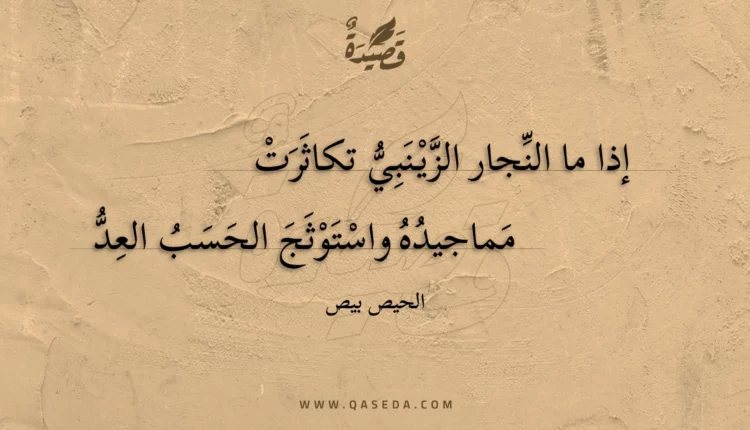 قَصِيْدَةٌ
إذا ما النِّجار الزَّيْنَبِيُّ تكاثَرَتْ
مَماجيدُهُ واسْتَوْثَجَ الحَسَبُ العِدُّ
الحيص بيص
WWW.QASEDA.COM